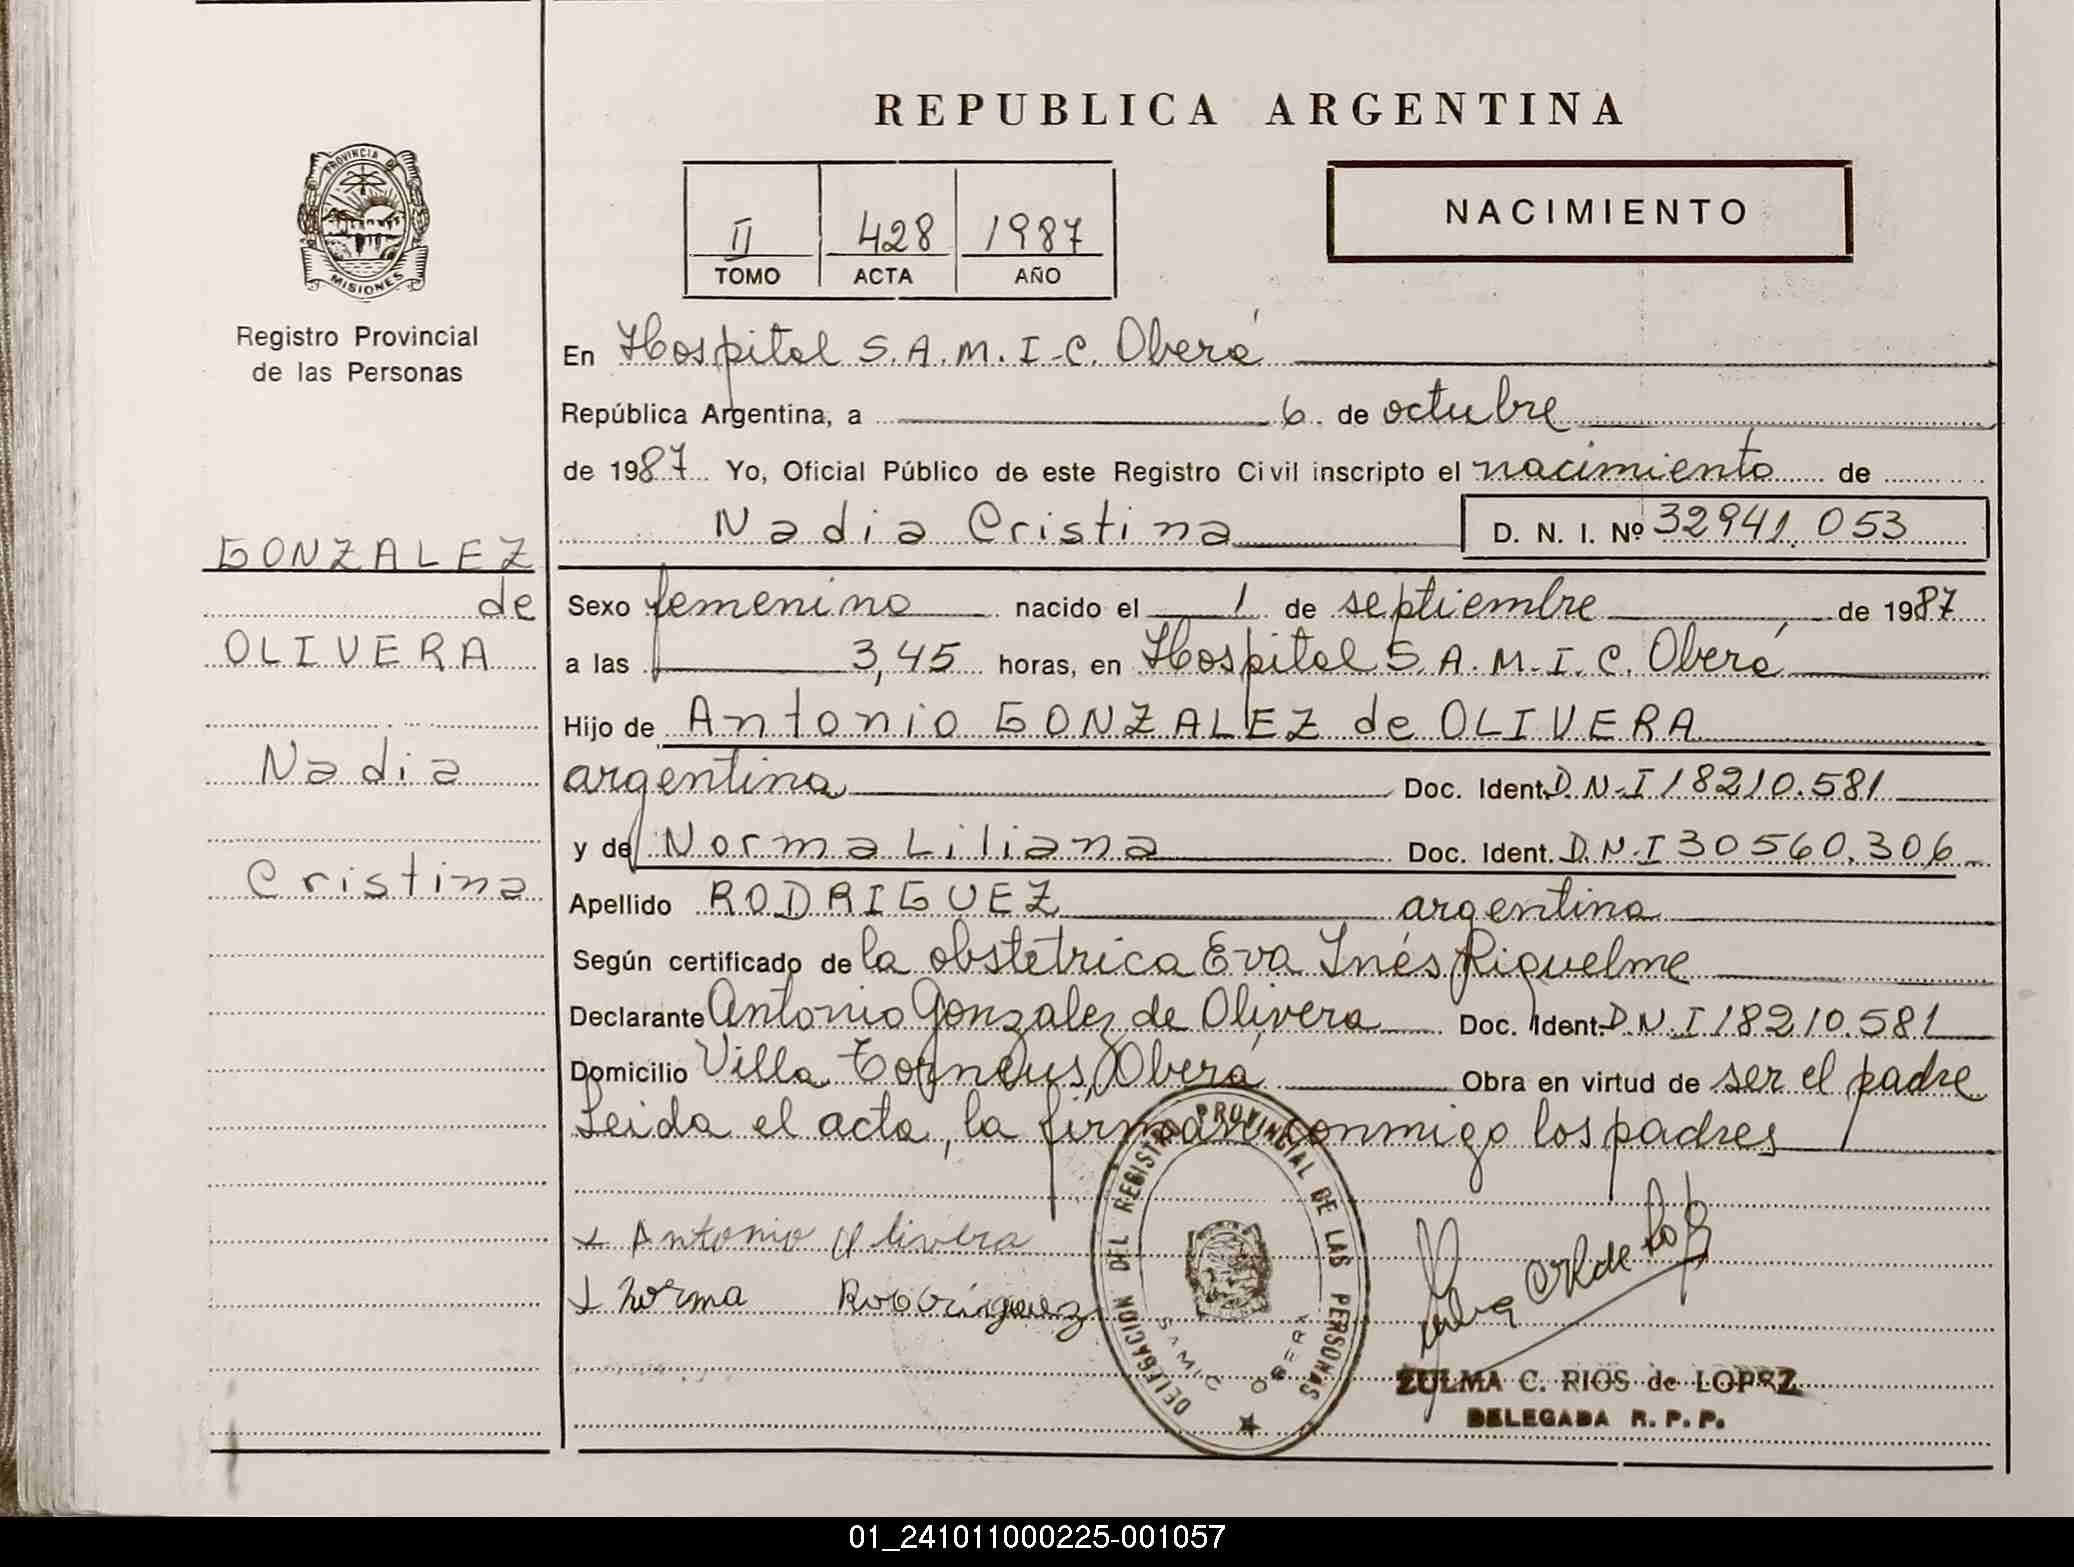 REPUBLICA ARGENTINA
PROVINCIA DE
MISIONES
Registro Provincial
de las Personas
II 428 1987
TOMO ACTA AÑO
NACIMIENTO
En Hospital S.A.M.I.C. Oberá
República Argentina, a 6 de octubre
de 1987 Yo, Oficial Público de este Registro Civil inscripto el nacimiento de
Nadia Cristina D. N. I. Nº 32941.053
GONZALEZ
de
OLIVERA
Nadia
Cristina
Sexo femenino nacido el 1 de septiembre de 1987
a las 3,45 horas, en Hospital S.A.M.I.C. Oberá
Hijo de Antonio GONZALEZ de OLIVERA
argentina Doc. Ident. D.N.I 18210.581
y de Norma Liliana Doc. Ident. D.N.I 30560.306
Apellido RODRIGUEZ argentina
Según certificado de la obstetrica Eva Inés Riquelme
Declarante Antonio Gonzalez de Olivera Doc. Ident. D.N.I 18210.581
Domicilio Villa Oberá Obra en virtud de ser el padre
Leida el acta, la firman conmigo los padres
Antonio Olivera
Norma
DELEGACION DEL REGISTRO PROVINCIAL DE LAS PERSONAS
SAMIC OBERA
ZULMA C. RIOS de LOPEZ
DELEGADA R. P. P.
01_241011000225-001057